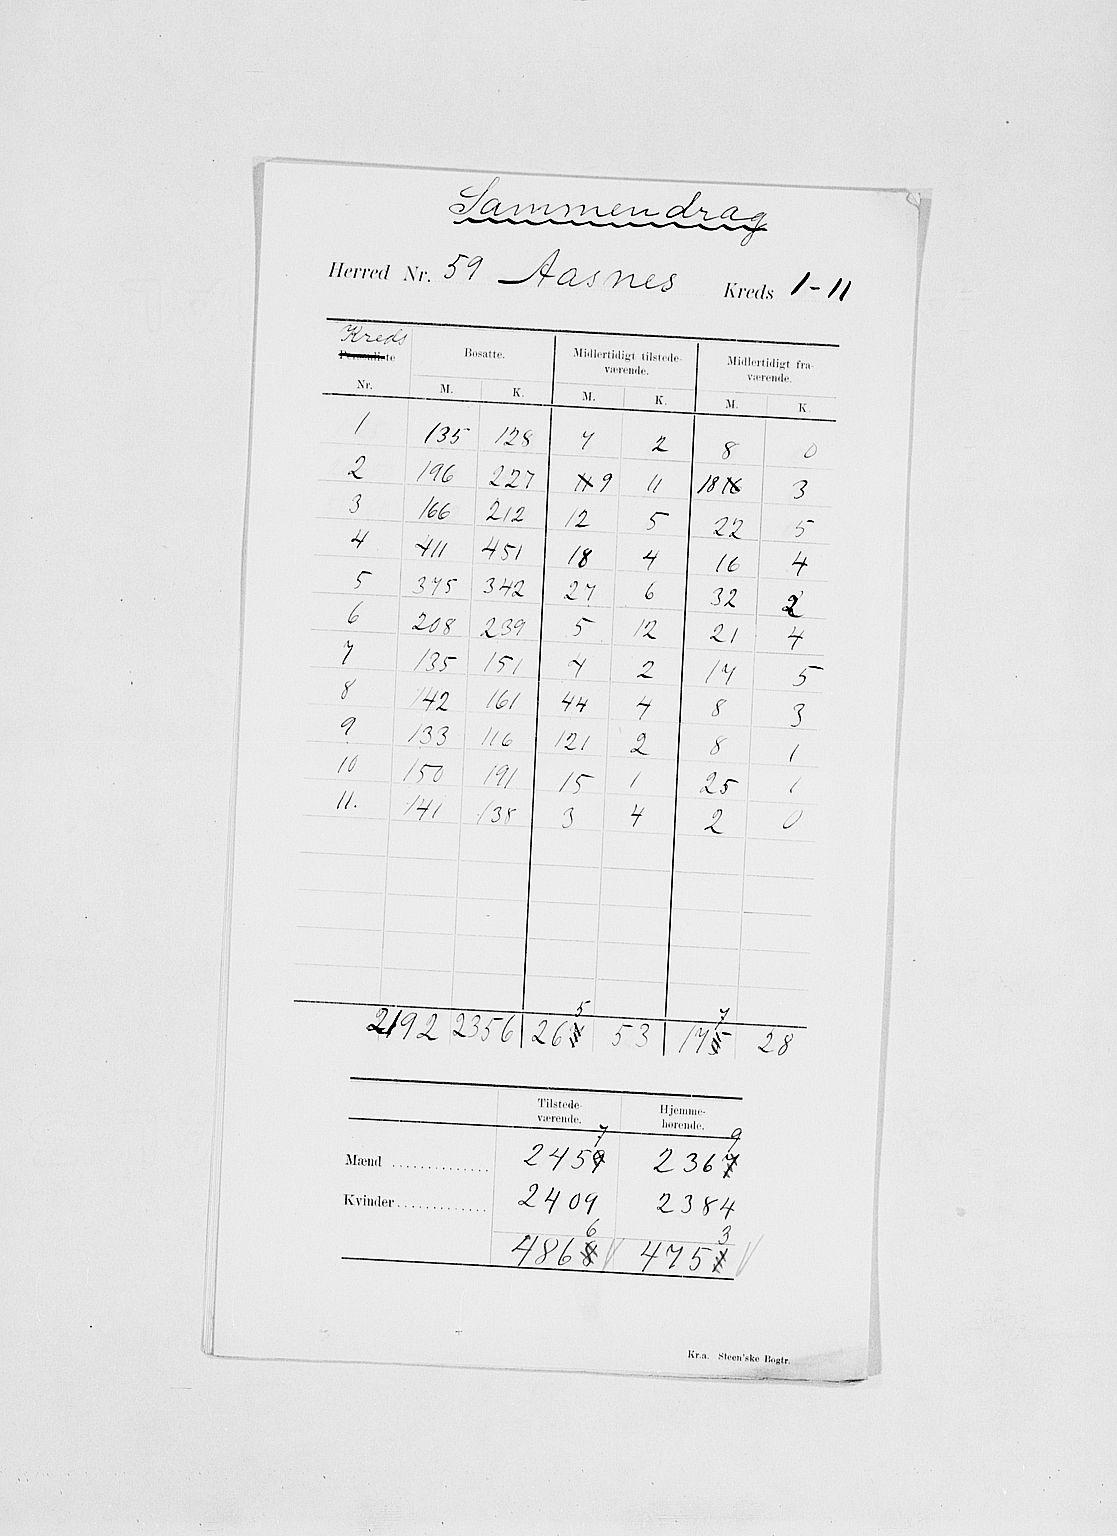 Sammendrag
Herred Nr. 59 Aasnes Kreds 1-11
Kreds
Nr. Bosatte. Midlertidigt tilstede-værende. Midlertidigt fra-værende.
M. K. M. K. M. K.
1 135 128 7 2 8 0
2 196 227 9 11 18 3
3 166 212 12 5 22 5
4 411 451 18 4 16 4
5 375 342 27 6 32 2
6 208 239 5 12 21 4
7 135 151 4 2 17 5
8 142 161 44 4 8 3
9 133 116 121 2 8 1
10 150 191 15 1 25 1
11. 141 138 3 4 2 0
2192 2356 265 53 177 28
Tilstede-værende. Hjemme-hørende.
Mænd 2457 2369
Kvinder 2409 2384
4866 4753
Kr.a. Steen'ske Bogtr.